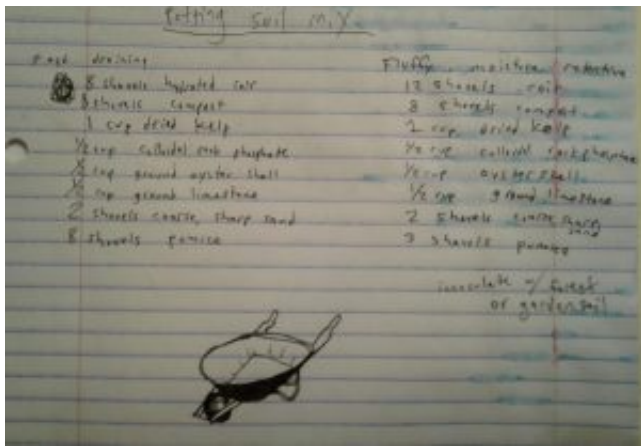 Potting Soil Mix
Fast draining
8 shovels hydrated coir
8 shovels compost
1 cup dried kelp
1/2 cup colloidal rock phosphate
1/2 cup ground oyster shell
1/2 cup ground limestone
2 shovels coarse, sharp sand
8 shovels pumice
Fluffy, moisture retentive
12 shovels coir
8 shovels compost
cup dried kelp
1/2 cup colloidal rock phosphate
1/2 cup oyster shell
1/2 cup ground limestone
2 shovels coarse, sharp
sand
shovels pumice
inoculate w/ forest
or garden soil